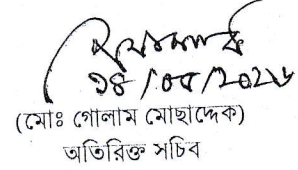 ১৪/০৫/২০২৬
(মোঃ গোলাম মোছাদ্দেক)
অতিরিক্ত সচিব